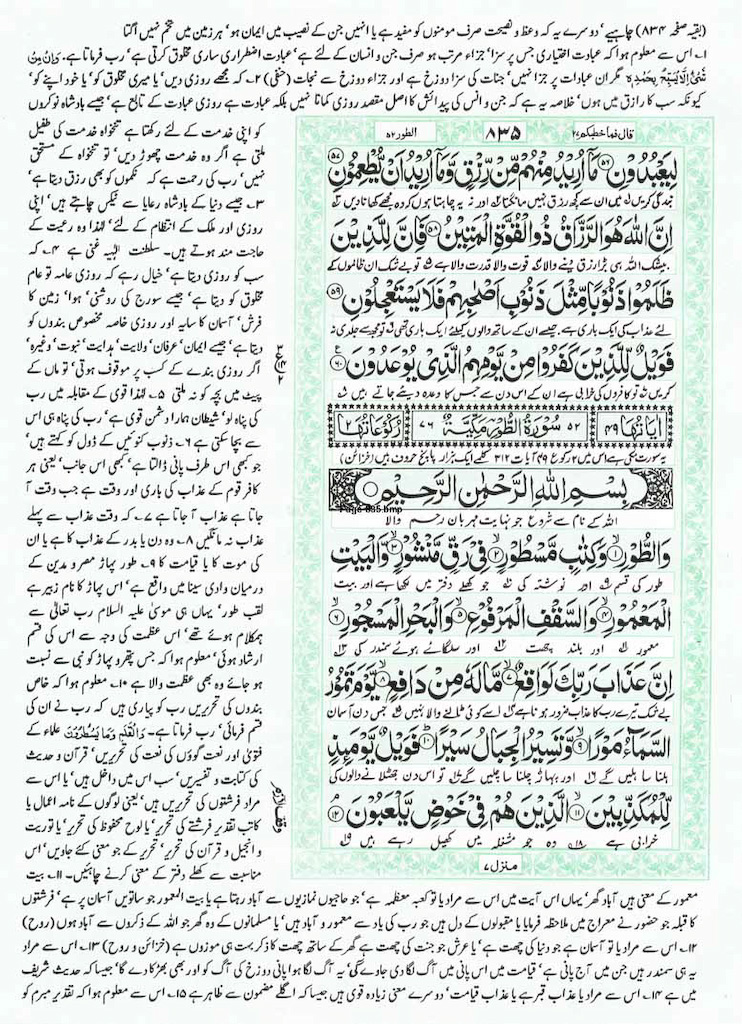 (بقیہ صفحہ ۸۳۴) چاہیے' دوسرے یہ کہ وعظ و نصیحت صرف مومنوں کو مفید ہے یا انہیں جن کے نصیب میں ایمان ہو' ہر زمین میں تخم نہیں اگتا
۱۔ اس سے معلوم ہوا کہ عبادت اختیاری جس پر سزا' جزاء مرتب ہو صرف جن و انسان کے لئے ہے' عبادت اضطراری ساری مخلوق کرتی ہے۔ رب فرماتا ہے۔ وَاِنْ مِنْ
شَیْءٍ اِلَّا یُسَبِّحُ بِحَمْدِہٖ مگر ان عبادات پر جزا نہیں' جنات کی سزا دوزخ ہے اور جزاء دوزخ سے نجات (حنفی) ۲۔ کہ مجھے روزی دیں' یا میری مخلوق کو' یا خود اپنے کو'
کیونکہ سب کا رازق میں ہوں' خلاصہ یہ ہے کہ جن و انس کی پیدائش کا اصل مقصد روزی کمانا نہیں بلکہ عبادت ہے روزی عبادت کے تابع ہے' جیسے بادشاہ نوکروں
قال فما خطبکم ۲۷
۸۳۵
الطور ۵۲
لِيَعْبُدُوْنِ ۵۶ مَآ اُرِيْدُ مِنْهُمْ مِّنْ رِّزْقٍ وَّمَآ اُرِيْدُ اَنْ يُّطْعِمُوْنِ ۵۷
بندگی کریں میں ان سے کچھ رزق نہیں مانگتا اور نہ یہ چاہتا ہوں کہ وہ مجھے کھانا دیں
اِنَّ اللّٰهَ هُوَ الرَّزَّاقُ ذُو الْقُوَّةِ الْمَتِيْنُ ۵۸ فَاِنَّ لِلَّذِيْنَ
بیشک اللہ ہی بڑا رزق دینے والا قوت والا قدرت والا ہے تو بے شک ان ظالموں کے
ظَلَمُوْا ذَنُوْبًا مِّثْلَ ذَنُوْبِ اَصْحٰبِهِمْ فَلَا يَسْتَعْجِلُوْنِ ۵۹
لئے عذاب کی ایک باری ہے جیسے ان کے ساتھ والوں کیلئے ایک باری تھی تو مجھ سے جلدی نہ
فَوَيْلٌ لِّلَّذِيْنَ كَفَرُوْا مِنْ يَّوْمِهِمُ الَّذِيْ يُوْعَدُوْنَ ۶۰
کریں تو کافروں کی خرابی ہے ان کے اس دن سے جس کا وعدہ دیئے جاتے ہیں
اٰیَاتُهَا ۴۹ ۵۲ سُوْرَةُ الطُّوْرِ مَكِّيَّةٌ ۷۶ رُكُوْعَاتُهَا ۲
یہ سورت مکی ہے اس میں ۲ رکوع ۴۹ آیات ۳۱۲ کلمے ایک ہزار پانچ حروف ہیں (خزائن)
بِسْمِ اللّٰهِ الرَّحْمٰنِ الرَّحِيْمِ
Page-835.bmp
اللہ کے نام سے شروع جو نہایت مہربان رحم والا
وَالطُّوْرِ ۱ وَكِتٰبٍ مَّسْطُوْرٍ ۲ فِيْ رَقٍّ مَّنْشُوْرٍ ۳ وَّالْبَيْتِ
طور کی قسم اور نوشتہ کی جو کھلے دفتر میں لکھا ہے اور بیت
الْمَعْمُوْرِ ۴ وَالسَّقْفِ الْمَرْفُوْعِ ۵ وَالْبَحْرِ الْمَسْجُوْرِ ۶
معمور اور بلند چھت اور سلگائے ہوئے سمندر کی
اِنَّ عَذَابَ رَبِّكَ لَوَاقِعٌ ۷ مَّا لَهٗ مِنْ دَافِعٍ ۸ يَّوْمَ تَمُوْرُ
بے شک تیرے رب کا عذاب ضرور ہونا ہے اسے کوئی ٹالنے والا نہیں جس دن آسمان
السَّمَآءُ مَوْرًا ۹ وَّتَسِيْرُ الْجِبَالُ سَيْرًا ۱۰ فَوَيْلٌ يَّوْمَئِذٍ
ہلنا سا ہلیں گے اور پہاڑ چلنا سا چلیں گے تو اس دن جھٹلانے والوں کی
لِّلْمُكَذِّبِيْنَ ۱۱ الَّذِيْنَ هُمْ فِيْ خَوْضٍ يَّلْعَبُوْنَ ۱۲
خرابی ہے وہ جو مشغلہ میں کھیل رہے ہیں
منزل ۷
کو اپنی خدمت کے لئے رکھتا ہے تنخواہ خدمت کی طفیل
ملتی ہے اگر وہ خدمت چھوڑ دیں' تو تنخواہ کے مستحق
نہیں' رب کی رحمت ہے کہ نکموں کو بھی رزق دیتا ہے'
۳۔ جیسے دنیا کے بادشاہ رعایا سے ٹیکس چاہتے ہیں' اپنی
روزی اور ملک کے انتظام کے لئے' لہٰذا وہ رعیت کے
حاجت مند ہوتے ہیں۔ سلطنت الٰہیہ غنی ہے ۴۔ کہ
سب کو روزی دیتا ہے' خیال رہے کہ روزی عامہ تو عام
مخلوق کو دیتا ہے' جیسے سورج کی روشنی' ہوا' زمین کا
فرش' آسمان کا سایہ اور روزی خاصہ مخصوص بندوں کو
دیتا ہے' جیسے ایمان' عرفان' ولایت' ہدایت' نبوت' وغیرہ'
اگر روزی بندے کے کسب پر موقوف ہوتی' تو ماں کے
پیٹ میں بچہ کو نہ ملتی ۵۔ لہٰذا قوی کے مقابلہ میں رب
کی پناہ لو' شیطان ہمارا دشمن قوی ہے' رب کی پناہ ہی اس
سے بچا سکتی ہے ۶۔ ذنوب کنوئیں کے ڈول کو کہتے ہیں'
جو کبھی اس طرف پانی ڈالتا ہے' کبھی اس جانب' یعنی ہر
کافر قوم کے عذاب کی باری اور وقت ہے جب وقت آ
جاتا ہے عذاب آ جاتا ہے ۷۔ کہ وقت عذاب سے پہلے
عذاب نہ مانگیں ۸۔ وہ دن یا بدر کے عذاب کا ہے یا ان
کی موت کا یا قیامت کا ۹۔ طور پہاڑ مصر و مدین کے
درمیان وادی سینا میں واقع ہے' اس پہاڑ کا نام زبیر ہے
لقب طور' یہاں ہی موسیٰ علیہ السلام رب تعالیٰ سے
ہمکلام ہوئے تھے' اس عظمت کی وجہ سے اس کی قسم
ارشاد ہوئی' معلوم ہوا کہ جس پتھر و پہاڑ کو نبی سے نسبت
ہو جائے وہ بھی عظمت والا ہے ۱۰۔ معلوم ہوا کہ خاص
بندوں کی تحریریں رب کو پیاری ہیں کہ رب نے ان کی
قسم فرمائی' رب فرماتا ہے۔ وَالْقَلَمِ وَمَا یَسْطُرُوْنَ علماء کے
فتویٰ اور نعت گوؤں کی نعت کی تحریریں' قرآن و حدیث
کی کتابت و تفسیریں' سب اس میں داخل ہیں' یا اس سے
مراد فرشتوں کی تحریریں ہیں' یعنی لوگوں کے نامہ اعمال یا
کاتب تقدیر فرشتے کی تحریر' یا لوح محفوظ کی تحریر' یا توریت
و انجیل و قرآن کی تحریر' تحریر کے جو معنی کئے جاویں' اس
مناسبت سے کھلے دفتر کے معنی کرنے چاہئیں۔ ۱۱۔ بیت
معمور کے معنی ہیں آباد گھر' یہاں اس آیت میں اس سے مراد یا تو کعبہ معظمہ ہے' جو حاجیوں نمازیوں سے آباد رہتا ہے یا بیت المعمور جو ساتویں آسمان پر ہے' فرشتوں
کا قبلہ جو حضور نے معراج میں ملاحظہ فرمایا یا مقبولوں کے دل ہیں جو رب کی یاد سے معمور و آباد ہیں' یا مسلمانوں کے وہ گھر جو اللہ کے ذکروں سے آباد ہوں (روح)
۱۲۔ اس سے مراد یا تو آسمان ہے جو دنیا کی چھت ہے' یا عرش جو جنت کی چھت ہے گھر کے ساتھ چھت کا ذکر بہت ہی موزوں ہے (خزائن و روح) ۱۳۔ اس سے مراد
یہ ہی سمندر ہیں جن میں آج پانی ہے' قیامت میں اس پانی میں آگ لگا دی جاوے گی' یہ آگ لگا ہوا پانی دوزخ کی آگ کو اور بھی بھڑکا دے گا' جیسا کہ حدیث شریف
میں ہے ۱۴۔ اس سے مراد یا عذاب قبر ہے یا عذاب قیامت' دوسرے معنی زیادہ قوی ہیں جیسا کہ اگلے مضمون سے ظاہر ہے ۱۵۔ اس سے معلوم ہوا کہ تقدیر مبرم کو